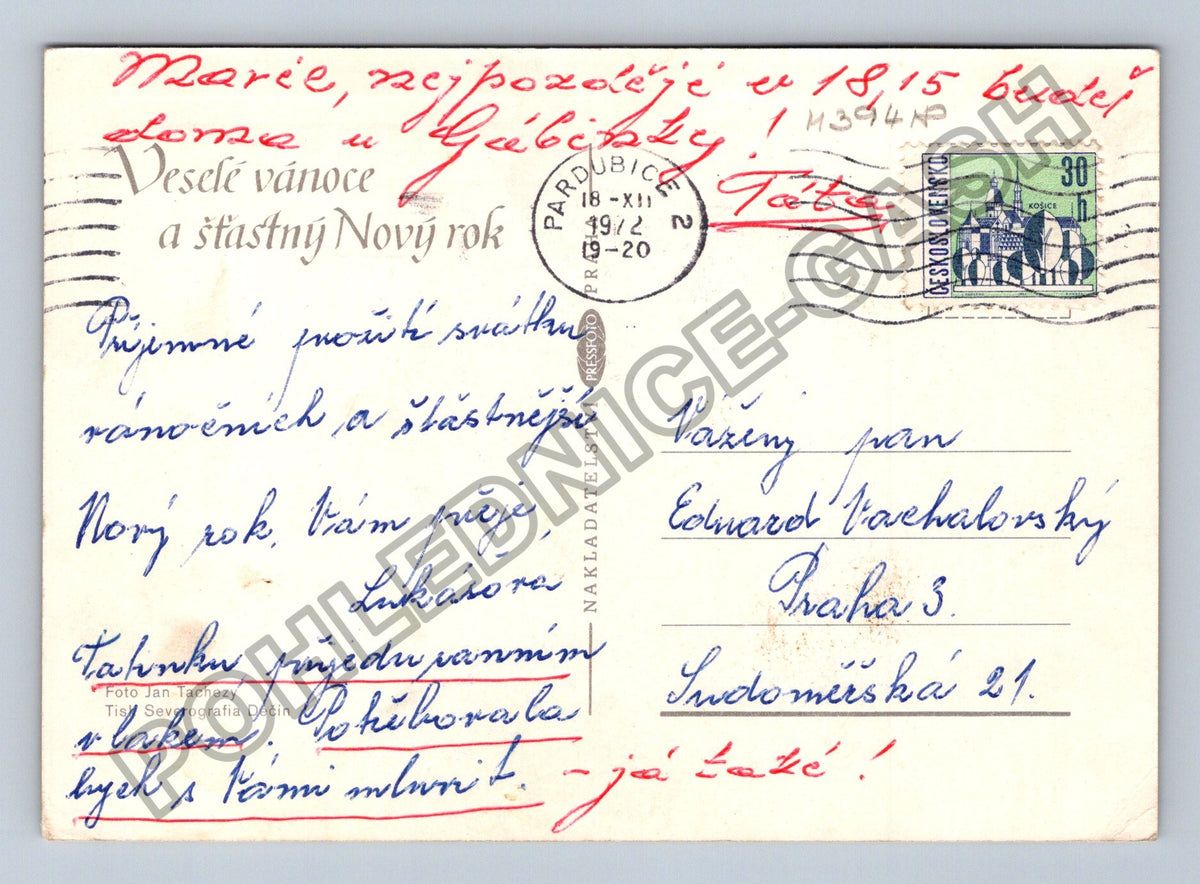 Marie, nejpozději v 18,15 budeš
doma u Gábinky!
M394AP
Táta
Veselé vánoce
a šťastný Nový rok
PARDUBICE 2
18-XII
1972
19-20
ČESKOSLOVENSKO
30
h
KOŠICE
Příjemné prožití svátků
vánočních a šťastnější
Nový rok, Vám přeje
Lukášová
Tatínku, přijedu ranním
vlakem. Potřebovala
bych s Vámi mluvit.
- já také!
Foto Jan Tachezy
Tisk Severografia Děčín
NAKLADATELSTVÍ PRESSFOTO PRAHA
Vážený pan
Eduard Vachalovský
Praha 3.
Sudoměřská 21.
POHLEDNICE-GASH